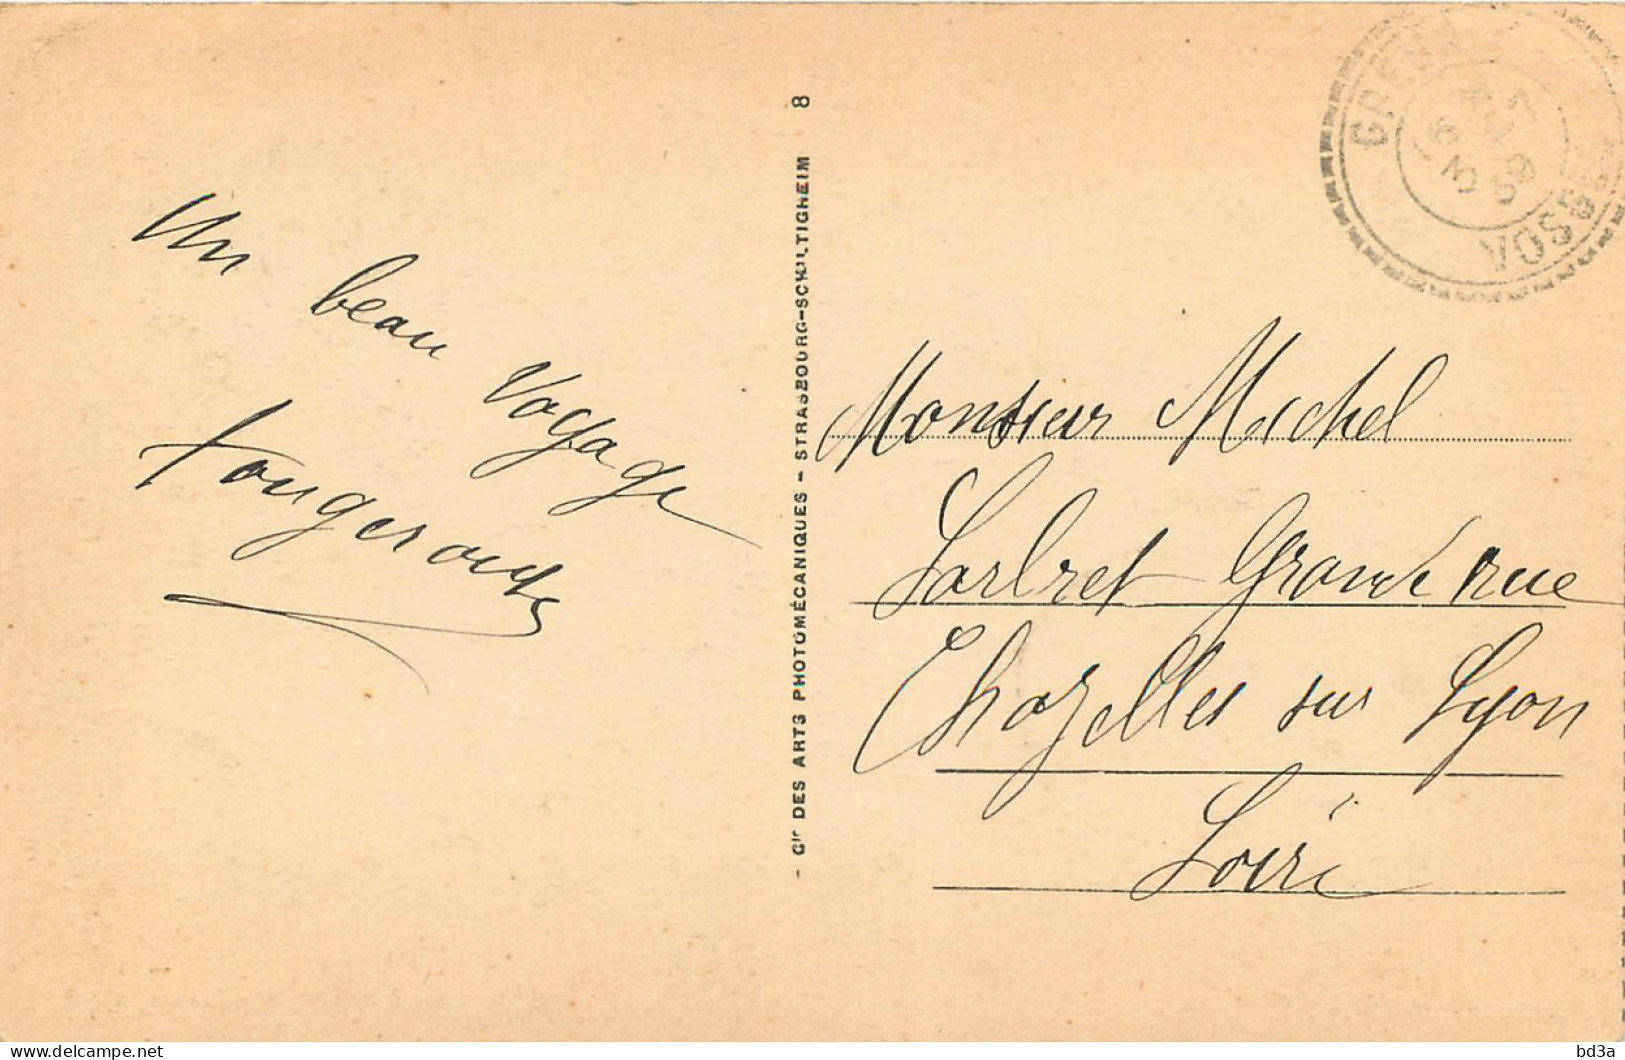 Un beau voyage
Fougerouse
- Cie DES ARTS PHOTOMÉCANIQUES - STRASBOURG-SCHILTIGHEIM 8
VOSGES
Monsieur Michel
Grande rue
Chazelles sur Lyon
Loire
www.delcampe.net
bd3a